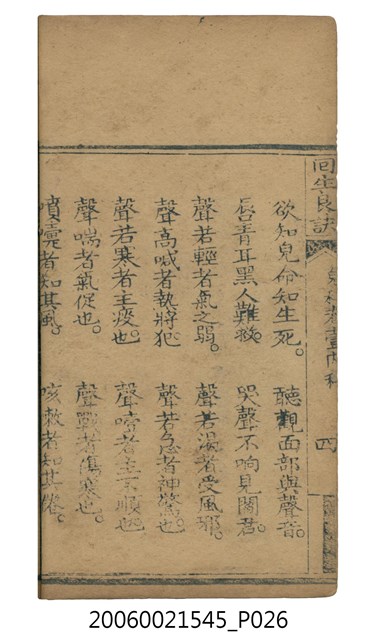 回生良訣 兒科卷壹內科 四
欲知兒命知生死。 聽觀面部與聲音。
唇青耳黑人難救。 哭聲不响見閻君。
聲若輕者氣之弱。 聲若濁者受風邪。
聲高喊者熱將犯 聲若急者神驚也
聲若寒者主痰也。 聲啞者主不順也
聲喘者氣促也。 聲戰者傷寒也。
噴嚏者知其風。 咳救者知其
20060021545_P026